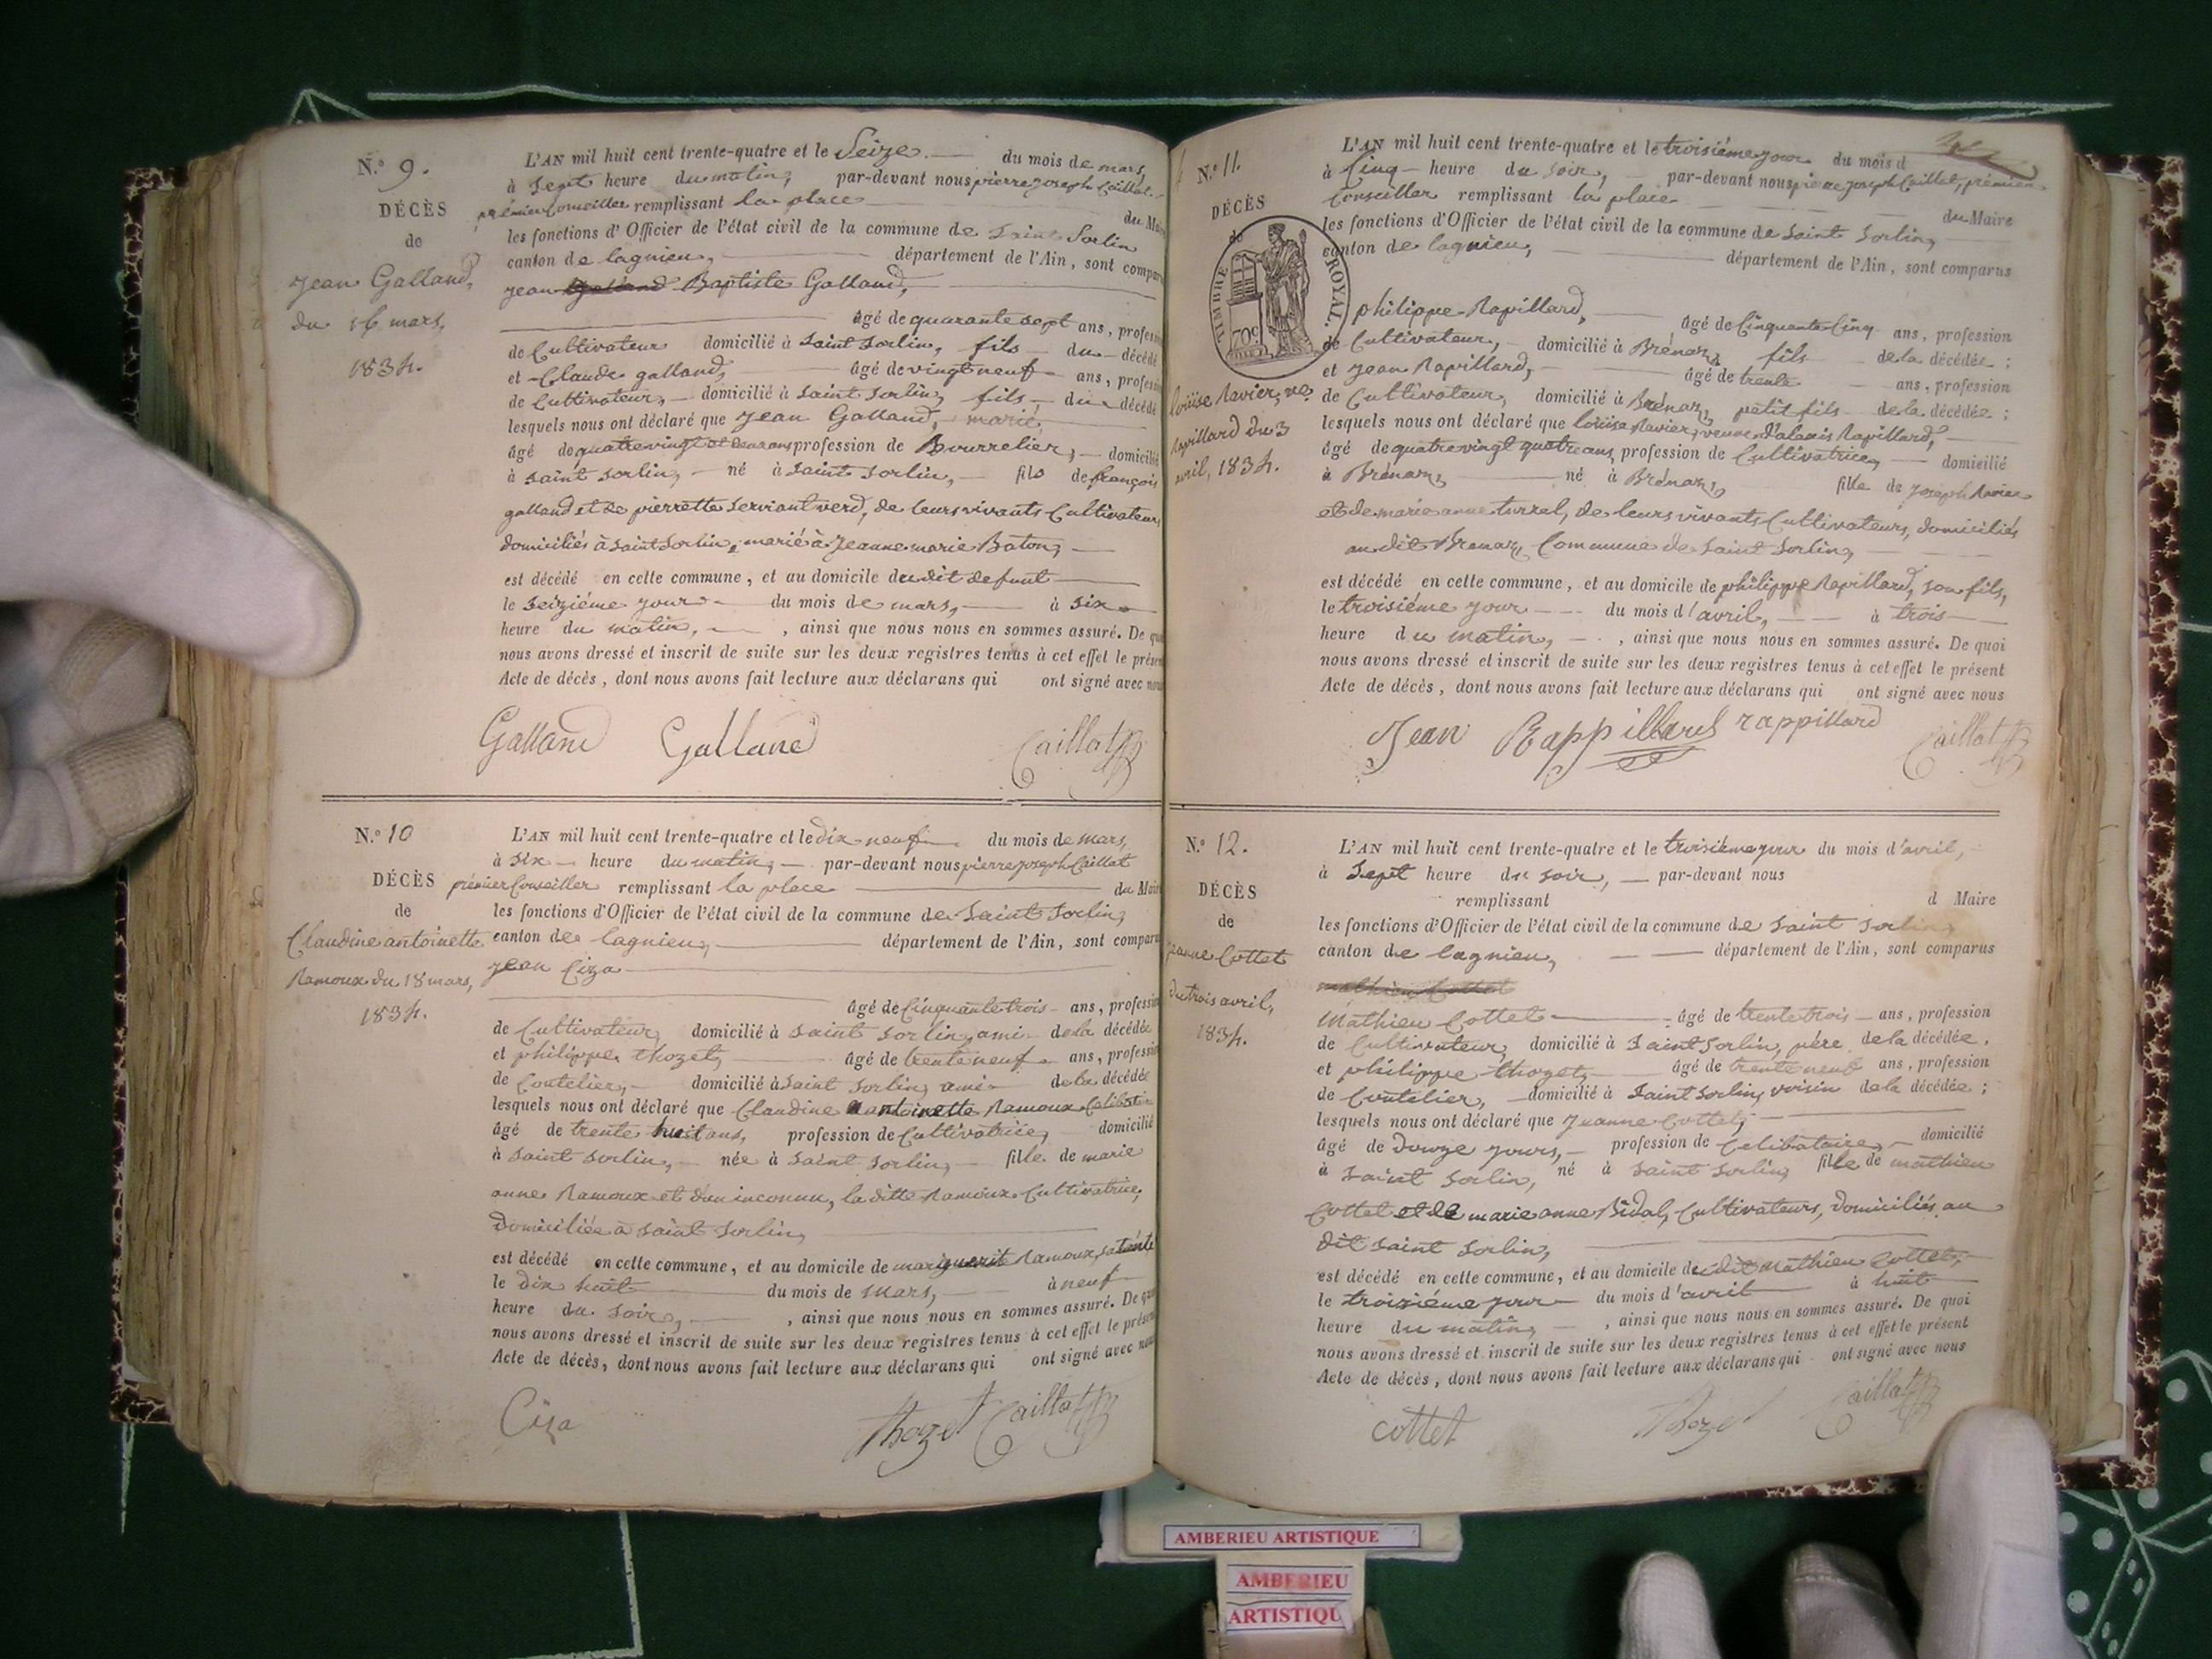 N.º 9.
DÉCÈS
de
Jean Galland,
du 16 mars,
1834.
L'AN mil huit cent trente-quatre et le Seize du mois de mars,
à Sept heure du matin, par-devant nous pierre joseph Caillat
prémier Conseiller remplissant la place du Maire
les fonctions d'Officier de l'état civil de la commune de Saint Sorlin
canton de lagnieu, département de l'Ain, sont compar
jean Baptiste Galland,
âgé de quarante sept ans, professi
de Cultivateur domicilié à Saint Sorlin, fils du décédé
et Claude galland, âgé de vingt neuf ans, professi
de Cultivateur, domicilié à Saint Sorlin, fils du décédé
lesquels nous ont déclaré que Jean Galland, marié,
âgé de quatrevingt et deux ans profession de Bourrelier, domicilié
à saint sorlin, né à Saint Sorlin, fils de françois
galland et de pierrette serviant verd, de leurs vivants Cultivateurs
domiciliés à Saint Sorlin, marié à Jeanne marie Baton,
est décédé en cette commune, et au domicile du dit defunt
le seiziéme jour du mois de mars, à six
heure du matin, , ainsi que nous nous en sommes assuré. De quoi
nous avons dressé et inscrit de suite sur les deux registres tenus à cet effet le présent
Acte de décès, dont nous avons fait lecture aux déclarans qui ont signé avec nous
Galland Galland Caillat
N.º 10
DÉCÈS
de
Claudine antoinette
Ramoux du 18 mars,
1834.
L'AN mil huit cent trente-quatre et le dix-neuf du mois de mars,
à six heure du matin, par-devant nous pierre joseph Caillat
prémier Conseiller remplissant la place du Maire
les fonctions d'Officier de l'état civil de la commune de Saint Sorlin,
canton de lagnieu, département de l'Ain, sont compar
jean Ciza
âgé de Cinquante trois ans, professi
de Cultivateur, domicilié à Saint Sorlin, ami de la décédée
et philippe thozet, âgé de trente neuf ans, professi
de Coutelier, domicilié à Saint Sorlin, ami de la décédée
lesquels nous ont déclaré que Claudine antoinette Ramoux Celibatai
âgé de trente huit ans, profession de Cultivatrice, domicilié
à Saint Sorlin, née à Saint Sorlin, fille de marie
anne Ramoux et d'un inconnu, la ditte Ramoux Cultivatrice,
Domiciliée à Saint Sorlin,
est décédé en cette commune, et au domicile de marguerit Ramoux, sa tante
le dix huit du mois de mars, à neuf
heure du soir, , ainsi que nous nous en sommes assuré. De quoi
nous avons dressé et inscrit de suite sur les deux registres tenus à cet effet le présent
Acte de décès, dont nous avons fait lecture aux déclarans qui ont signé avec nous
Ciza Thozet Caillat
N.º 11.
DÉCÈS
de
TIMBRE ROYAL.
70c
loüise Ravier, ve
Rapillard du 3
avril, 1834.
L'AN mil huit cent trente-quatre et le troisiéme jour du mois d
à Cinq heure du soir, par-devant nous pierre joseph Caillat, prémier
Conseiller remplissant la place du Maire
les fonctions d'Officier de l'état civil de la commune de Saint Sorlin,
canton de lagnieu, département de l'Ain, sont comparus
philippe Rapillard, âgé de Cinquante Cinq ans, profession
de Cultivateur, domicilié à Brénaz, fils de la décédée ;
et Jean Rapillard, âgé de trente ans, profession
de Cultivateur, domicilié à Brénaz, petit fils de la décédée ;
lesquels nous ont déclaré que loüise Ravier, veuve d'alexis Rapillard,
âgé de quatrevingt quatre ans, profession de Cultivatrice, domicilié
à Brénaz, né à Brénaz, fille de joseph Ravier
et de marie anne turrel, de leurs vivants Cultivateurs, domiciliés
au dit Brenaz, Commune de Saint Sorlin,
est décédé en cette commune, et au domicile de philippe Rapillard, son fils,
le troisiéme jour du mois d'avril, à trois
heure du matin, , ainsi que nous nous en sommes assuré. De quoi
nous avons dressé et inscrit de suite sur les deux registres tenus à cet effet le présent
Acte de décès, dont nous avons fait lecture aux déclarans qui ont signé avec nous
Jean Rappillard rappillard Caillat
N.º 12.
DÉCÈS
de
jeanne Cottet
du trois avril,
1834.
L'AN mil huit cent trente-quatre et le troisiéme jour du mois d'avril,
à Sept heure du soir, par-devant nous
remplissant d Maire
les fonctions d'Officier de l'état civil de la commune de Saint Sorlin
canton de lagnieu, département de l'Ain, sont comparus
mathieu Cottet
Mathieu Cottet âgé de trente trois ans, profession
de Cultivateur, domicilié à Saint Sorlin, pére de la décédée.
et philippe thozet, âgé de trente neuf ans, profession
de Coutelier, domicilié à Saint Sorlin, voisin de la décédée ;
lesquels nous ont déclaré que Jeanne Cottet,
âgé de douze jours, profession de Celibataire, domicilié
à Saint Sorlin, né à Saint Sorlin, fille de mathieu
Cottet et de marie anne Bidal, Cultivateurs, domiciliés au
dit Saint Sorlin,
est décédé en cette commune, et au domicile du dit mathieu Cottet,
le troisiéme jour du mois d'avril à huit
heure du matin, , ainsi que nous nous en sommes assuré. De quoi
nous avons dressé et inscrit de suite sur les deux registres tenus à cet effet le présent
Acte de décès, dont nous avons fait lecture aux déclarans qui ont signé avec nous
Cottet Thozet Caillat
AMBERIEU ARTISTIQUE
AMBERIEU
ARTISTIQU